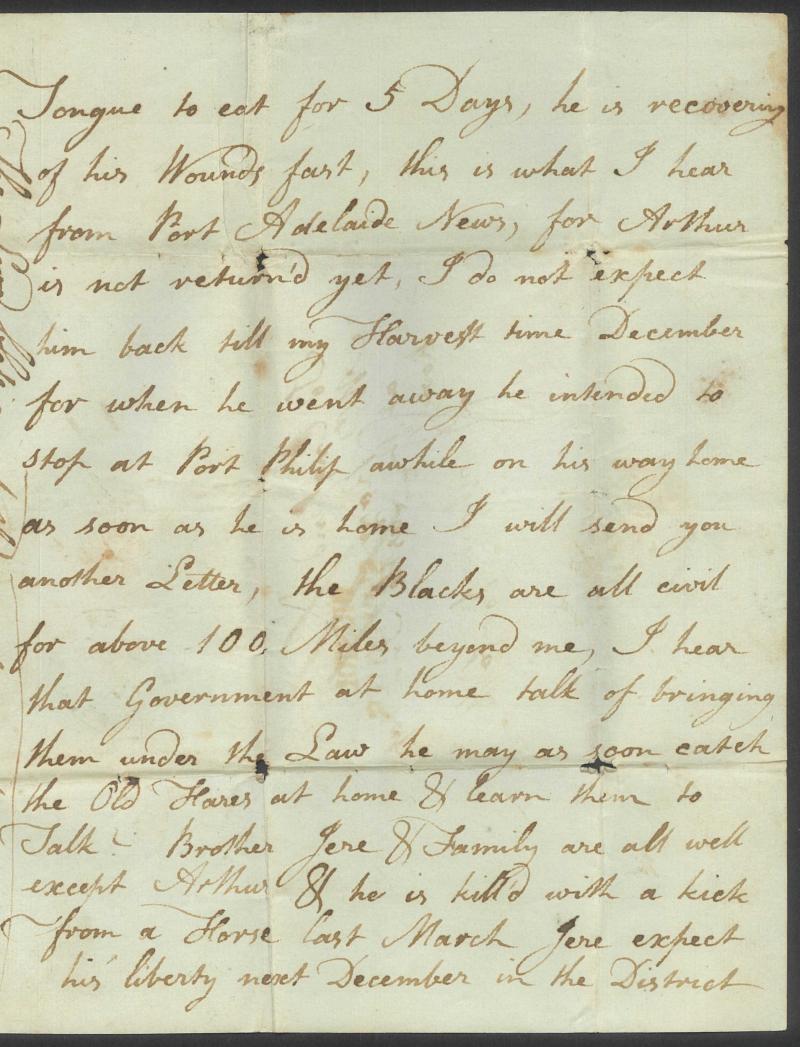 Tongue to eat for 5 Days, he is recovering
of his Wounds fast, this is what I hear
from Port Adelaide News, for Arthur
is not return'd yet, I do not expect
him back till my Harvest time December
for when he went away he intended to
stop at Port Philip awhile on his way home
as soon as he is home I will send you
another Letter, the Blacks are all civil
for above 100, Miles beyond me, I hear
that Government at home talk of bringing
them under the Law he may as soon catch
the Old Hares at home & learn them to
Talk - Brother Jere & Family are all well
except Arthur & he is kill'd with a kick
from a Horse last March Jere expect
his liberty next December in the District